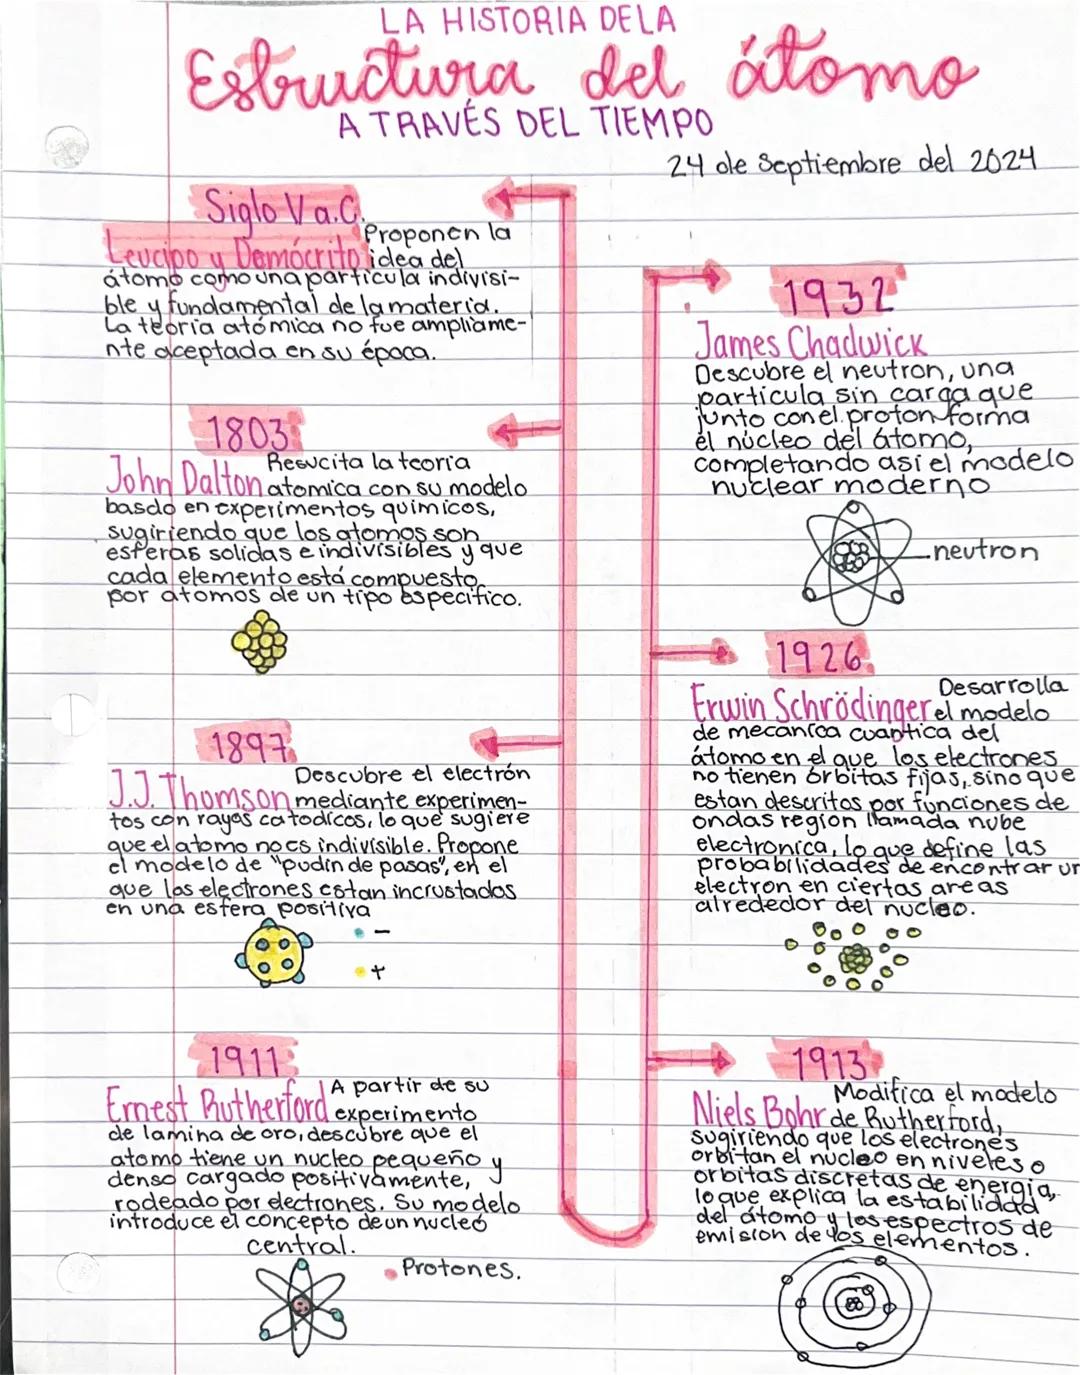 LA HISTORIA DE LA
Estructura del átomo
A TRAVÉS DEL TIEMPO
24 de Septiembre del 2024
Siglo V a.C.
Leucipo y Demócrito Proponen la
idea del
átomo como una particula indivisi-
ble y fundamental de la materia.
La teoría atómica no fue ampliame-
nte aceptada en su época.
1803
John Dalton Resucita la teoria
atomica con su modelo
basdo en experimentos quimicos,
sugiriendo que los atomos son
esferas solidas e indivisibles y que
cada elemento está compuesto
por atomos de un tipo especifico.
1897
J.J. Thomson Descubre el electrón
mediante experimen-
tos con rayos catodicos, lo que sugiere
que el atomo no es indivisible. Propone
el modelo de "pudin de pasas", en el
que los electrones estan incrustados
en una esfera positiva
-
+
1911
Ernest Rutherford A partir de su
experimento
de lamina de oro, descubre que el
atomo tiene un nucleo pequeño y
denso cargado positivamente,
rodeado por electrones. Su modelo
introduce el concepto de un nucleo
central.
Protones.
1932
James Chadwick
Descubre el neutron, una
particula sin carga que
junto con el proton forma
el núcleo del átomo,
completando asi el modelo
nuclear moderno
neutron
1926
Erwin Schrödinger Desarrolla
el modelo
de mecanica cuantica del
átomo en el que los electrones
no tienen orbitas fijas, sino que
estan descritos por funciones de
ondas region llamada nube
electronica, lo que define las
probabilidades de encontrar un
electron en ciertas areas
alrededor del nucleo.
1913
Niels Bohr Modifica el modelo
de Rutherford,
sugiriendo que los electrones
orbitan el nucleo en niveles o
orbitas discretas de energia,
lo que explica la estabilidad
del átomo y los espectros de
emision de los elementos.